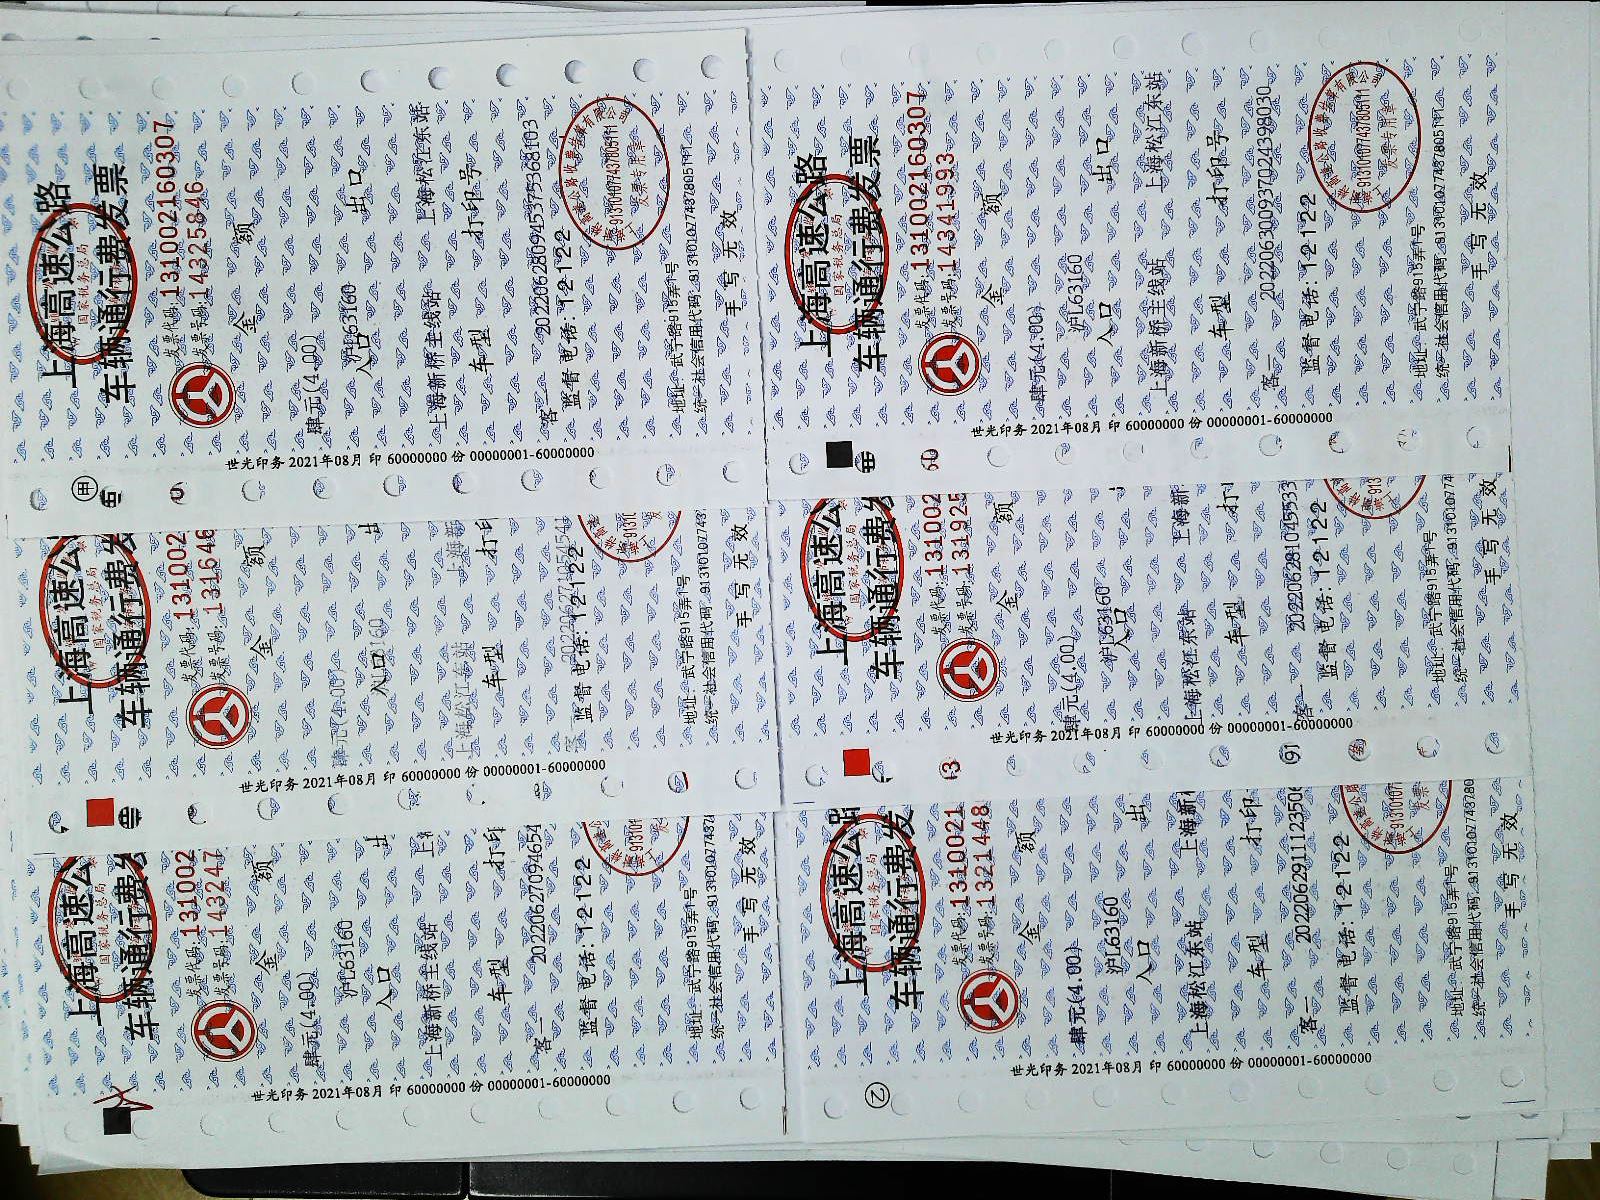 上海高速公路
国家税务总局
车辆通行费发票
发票代码:131002160307
发票号码:14325846
金 额
肆元(4.00)
沪L63160
入口 出口
上海新桥主线站 上海松江东站
车型 打印号
客一 202206280945375368103
监督电话:12122
913101077437805111
发票专用章
地址:武宁路915弄1号
统一社会信用代码:913101077437805111
手写无效
世光印务 2021年08月 印 60000000 份 00000001-60000000
上海高速公路
国家税务总局
车辆通行费发票
发票代码:131002160307
发票号码:14341993
金 额
肆元(4.00)
沪L63160
入口 出口
上海新桥主线站 上海松江东站
车型 打印号
客一 202206300937024398030
监督电话:12122
913101077437805111
发票专用章
地址:武宁路915弄1号
统一社会信用代码:913101077437805111
手写无效
世光印务 2021年08月 印 60000000 份 00000001-60000000
上海高速公
国家税务总局
车辆通行费发
发票代码:131002
发票号码:131646
金 额
肆元(4.00)
入口 出
上海松江东站 上海新
车型 打印
客一
监督电话:12122
地址:武宁路915弄1号
统一社会信用代码:913101077437
手写无效
世光印务 2021年08月 印 60000000 份 00000001-60000000
上海高速公
国家税务总局
车辆通行费发
发票代码:131002
发票号码:131925
金 额
肆元(4.00)
沪L63160
入口
上海松江东站 上海新
车型 打
客一 20220628104533
监督电话:12122
地址:武宁路915弄1号
统一社会信用代码:913101077437
手写无效
世光印务 2021年08月 印 60000000 份 00000001-60000000
上海高速公
国家税务总局
车辆通行费发
发票代码:131002
发票号码:143247
金 额
肆元(4.00)
沪L63160
入口 出
上海新桥主线站 上
车型 打印
客一 20220627094654
监督电话:12122
地址:武宁路915弄1号
统一社会信用代码:9131010774378
手写无效
世光印务 2021年08月 印 60000000 份 00000001-60000000
上海高速公路
国家税务总局
车辆通行费发
发票代码:1310021
发票号码:1321448
金 额
肆元(4.00)
沪L63160
入口 出
上海松江东站 上海新
车型 打印
客一 20220629111235
监督电话:12122
地址:武宁路915弄1号
统一社会信用代码:91310107743780
手写无效
世光印务 2021年08月 印 60000000 份 00000001-60000000
②